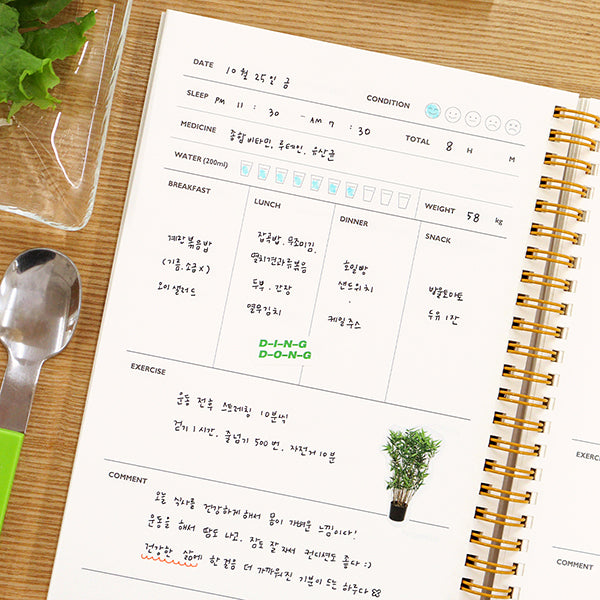 DATE 10월 25일 금 CONDITION
SLEEP PM 11 : 30 - AM 7 : 30 TOTAL 8 H M
MEDICINE 종합비타민, 루테인, 유산균
WATER (200ml) WEIGHT 58 kg
BREAKFAST
계란볶음밥
(기름, 소금 X)
오이샐러드
LUNCH
잡곡밥, 무조미김,
멸치견과류볶음
두부, 간장
열무김치
D-I-N-G
D-O-N-G
DINNER
호밀빵
샌드위치
케일주스
SNACK
방울토마토
두유 1잔
EXERCISE
운동 전후 스트레칭 10분씩
걷기 1시간, 줄넘기 500번, 자전거 10분
COMMENT
오늘 식사를 건강하게 해서 몸이 가벼운 느낌이다!
운동을 해서 땀도 나고, 잠도 잘 자서 컨디션도 좋다 :)
건강한 삶에 한 걸음 더 가까워진 기분이 드는 하루다
EXERCI
COMMENT